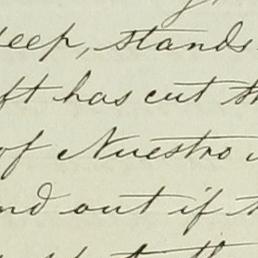 deep, stands
ft has cut
of Nuestro
nd out if